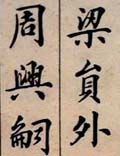 梁員外
周興嗣